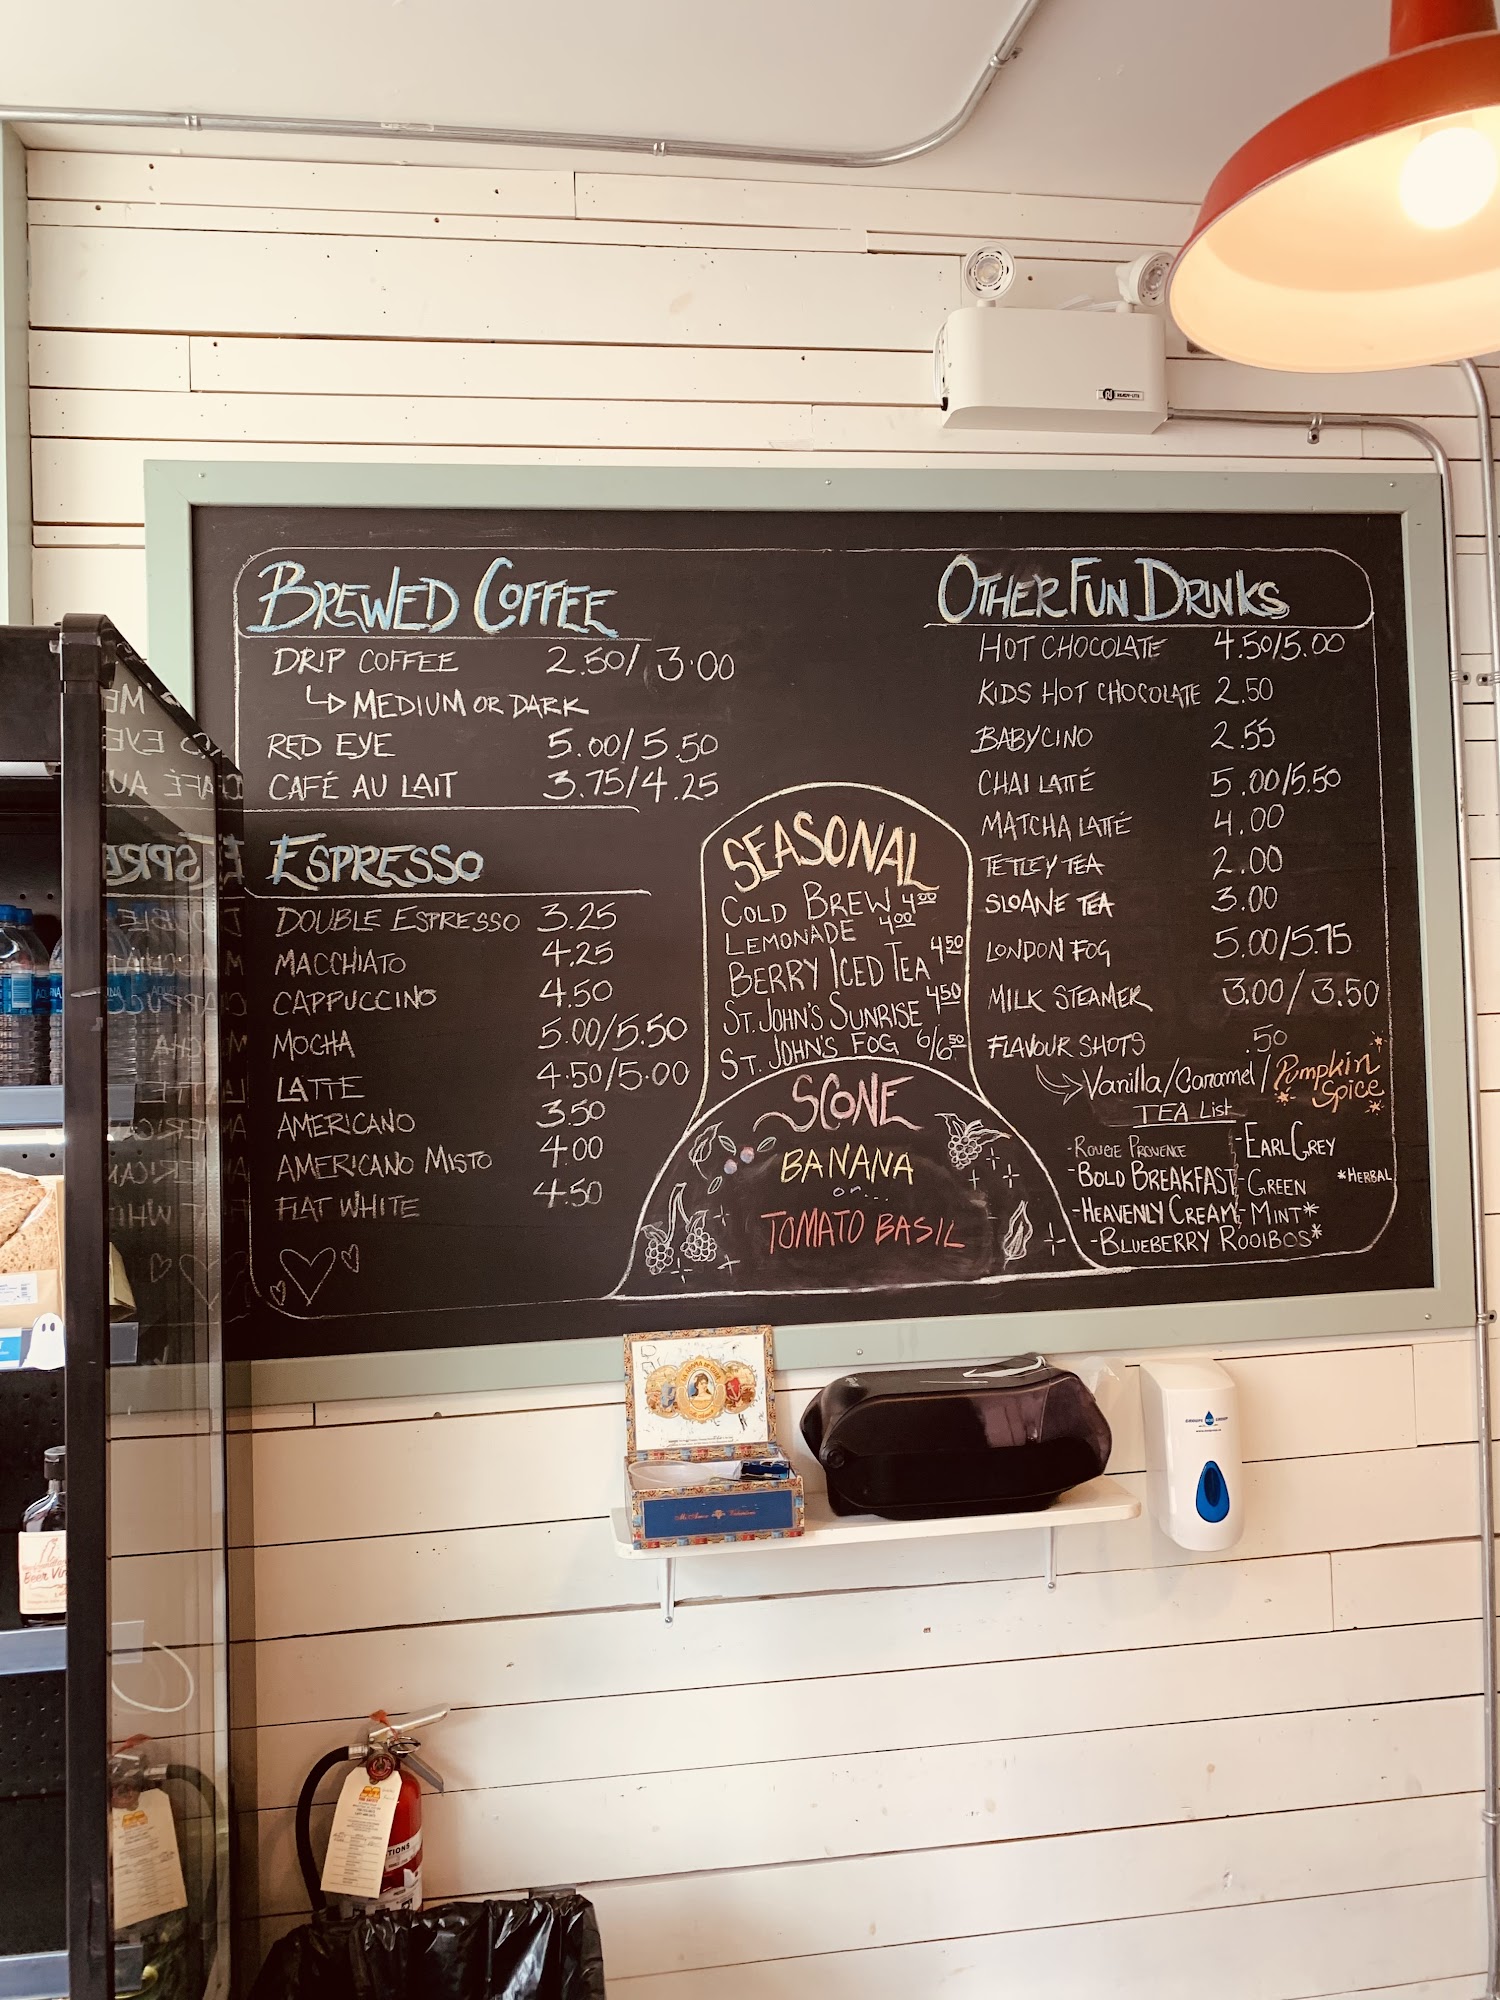 BREWED COFFEE
DRIP COFFEE 2.50/3.00
MEDIUM OR DARK
RED EYE 5.00/5.50
CAFÉ AU LAIT 3.75/4.25
ESPRESSO
DOUBLE ESPRESSO 3.25
MACCHIATO 4.25
CAPPUCCINO 4.50
MOCHA 5.00/5.50
LATTE 4.50/5.00
AMERICANO 3.50
AMERICANO MISTO 4.00
FLAT WHITE 4.50
SEASONAL
COLD BREW 4.00
LEMONADE 4.00
BERRY ICED TEA 4.50
ST. JOHN'S SUNRISE 4.50
ST. JOHN'S FOG 6/6.50
SCONE
BANANA
or...
TOMATO BASIL
OTHER FUN DRINKS
HOT CHOCOLATE 4.50/5.00
KIDS HOT CHOCOLATE 2.50
BABYCINO 2.55
CHAI LATTÉ 5.00/5.50
MATCHA LATTÉ 4.00
TETLEY TEA 2.00
SLOANE TEA 3.00
LONDON FOG 5.00/5.75
MILK STEAMER 3.00/3.50
FLAVOUR SHOTS .50
Vanilla/Caramel/Pumpkin Spice
TEA List
-ROUGE PROVENCE -EARL GREY
-BOLD BREAKFAST -GREEN *HERBAL
-HEAVENLY CREAM -MINT*
-BLUEBERRY ROOIBOS*
READY-LITE
Beer Vin